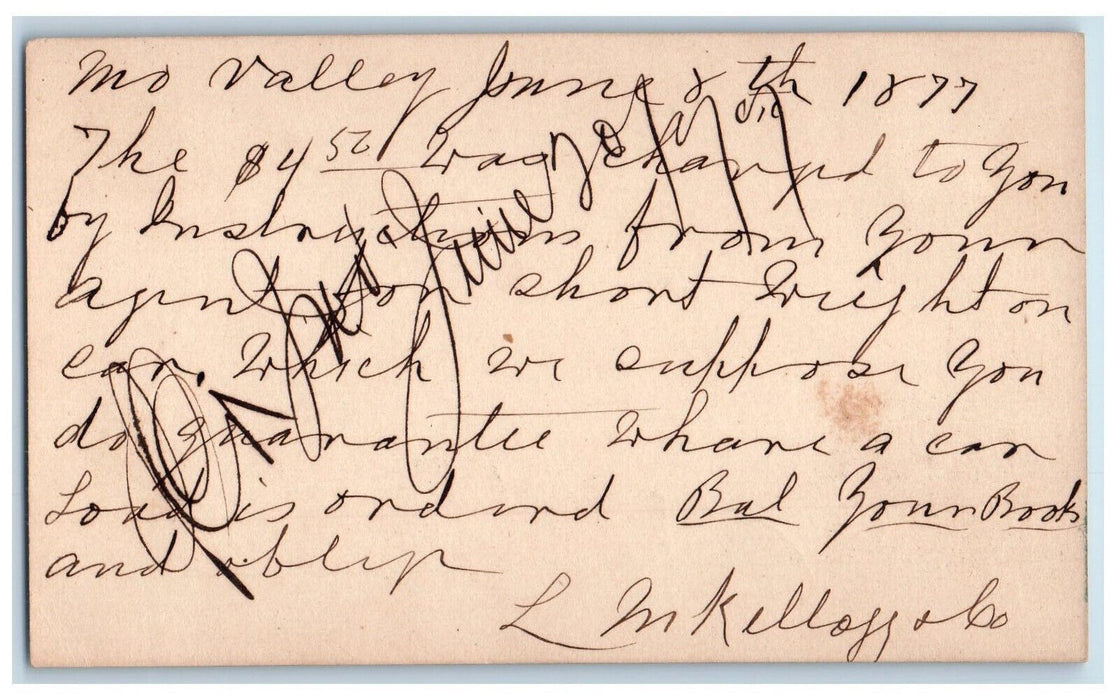 Mo Valley June 8th 1877
The $4 52 Was charged to You
by Instructions from Your
agent for short Weight on
car. Which we suppose You
do guarantee Whare a car
Load is orderd Bal Your Books
and oblige
L M Kellogg & Co
June 20 / 77